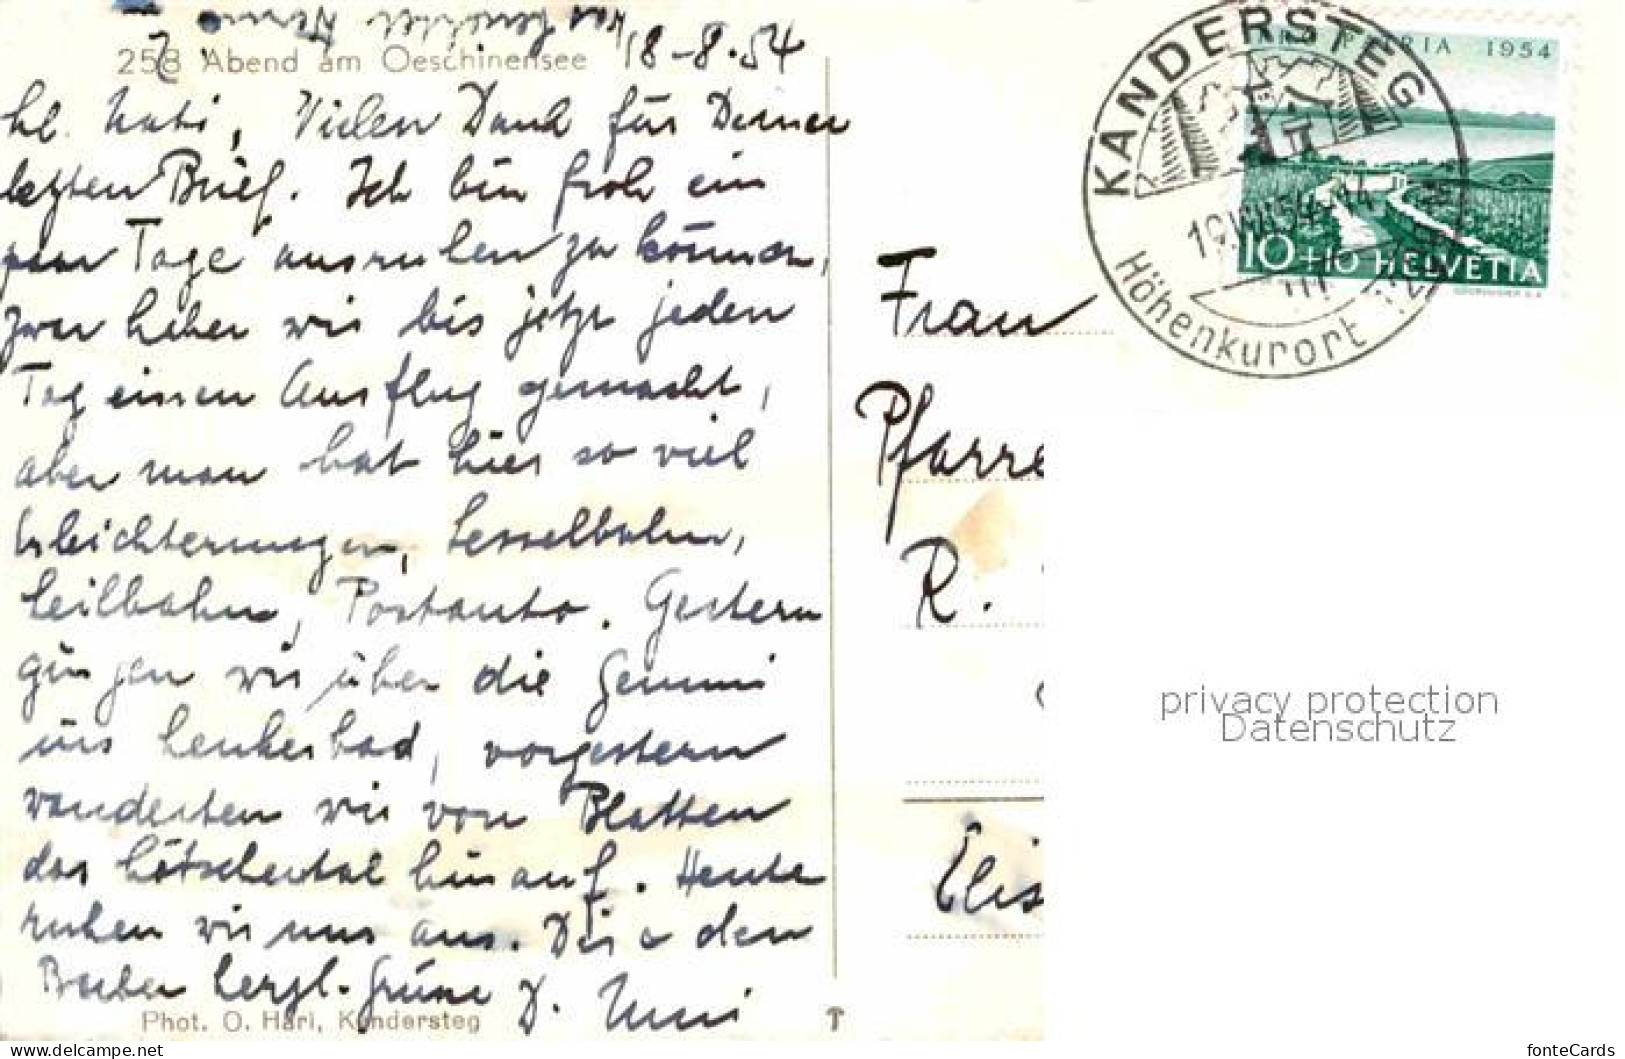 258 Abend am Oeschinensee 18-8.54
hl. Kati, Vielen Dank für Deinen
letzten Brief. Ich bin froh ein
paar Tage ausruhen zu können,
zwar haben wir bis jetzt jeden
Tag einen Ausflug gemacht,
aber man hat hier so viel
Erleichterungen, Sesselbahn,
Seilbahn, Postauto. Gestern
gingen wir über die Gemmi
ins Leukerbad, vorgestern
wanderten wir von Blatten
das Lötschental hinauf. Heute
ruhen wir uns aus. Dir & den
Buben herzl. Grüsse D.
Phot. O. Hari, Kandersteg
KANDERSTEG
Höhenkurort
PATRIA 1954
10+10 HELVETIA
Frau
Pfarre
R.
Elis
privacy protection
Datenschutz
https://www.delcampe.net
fonteCards